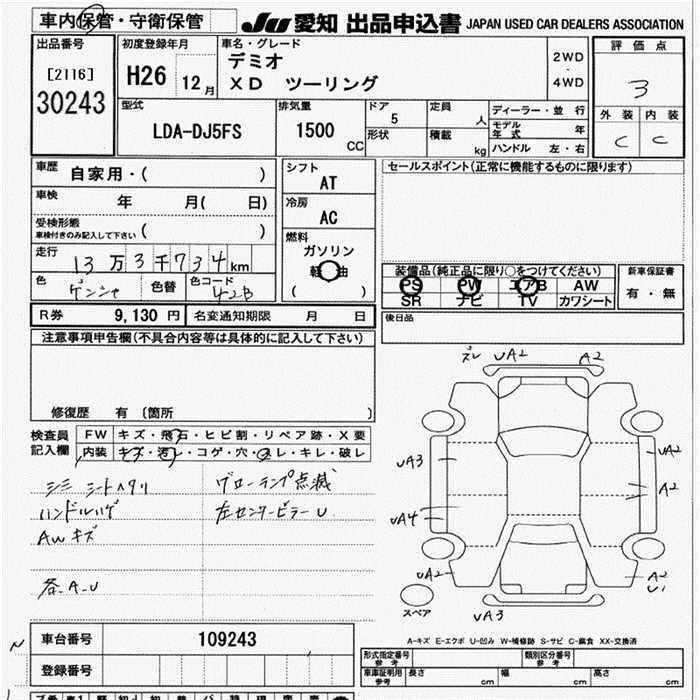 車内保管・守衛保管
JU 愛知 出品申込書 JAPAN USED CAR DEALERS ASSOCIATION
出品番号
[2116]
30243
初度登録年月
H26 12月
車名・グレード
デミオ
XD ツーリング
2WD
・
4WD
評価点
3
外装 内装
C C
型式
LDA-DJ5FS
排気量
1500 CC
ドア
5
形状
定員
人
積載
kg
ディーラー・並行
モデル年式 年
ハンドル 左・右
車歴
自家用・( )
車検
年 月( 日)
受検形態
車検付きのみ記入して下さい ( )
走行
13万3千734km
色
ゲンシャ
色替
色コード
42B
シフト
AT
冷房
AC
燃料
ガソリン
軽油
( )
セールスポイント(正常に機能するものに限ります)
装備品(純正品に限り○をつけてください)
PS PW エアB AW
SR ナビ TV カワシート
新車保証書
有・無
R券 9,130円
名変通知期限 月 日
後日品
注意事項申告欄(不具合内容等は具体的に記入して下さい)
修復歴 有 (箇所 )
検査員記入欄
FW キズ・飛石・ヒビ割・リペア跡・X要
内装 キズ・汚レ・コゲ・穴・スレ・キレ・破レ
シミ シートヘタリ
ハンドルハゲ
AWキズ
各A・U
グローランプ点滅
左センターピラーU
ズレ UA2 A2
UA3
UA4
UA2
A2
A2
UA2
A2
U1
スペア
UA3
A-キズ E-エクボ U-凹み W-補修跡 S-サビ C-腐食 XX-交換済
N
車台番号 109243
登録番号
形式指定番号 参考
類別区分番号 参考
車庫証明用 参考
長さ cm
幅 cm
高さ cm